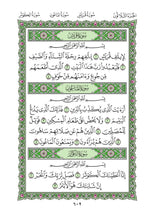 سُورَةُ قُرَيْشٍ
بِسْمِ ٱللَّهِ ٱلرَّحْمَٰنِ ٱلرَّحِيمِ
لِإِيلَٰفِ قُرَيْشٍ ١ إِۦلَٰفِهِمْ رِحْلَةَ ٱلشِّتَآءِ وَٱلصَّيْفِ
٢ فَلْيَعْبُدُوا۟ رَبَّ هَٰذَا ٱلْبَيْتِ ٣ ٱلَّذِىٓ أَطْعَمَهُم
مِّن جُوعٍ وَءَامَنَهُم مِّنْ خَوْفٍۭ ٤
سُورَةُ المَاعُونِ
بِسْمِ ٱللَّهِ ٱلرَّحْمَٰنِ ٱلرَّحِيمِ
أَرَءَيْتَ ٱلَّذِى يُكَذِّبُ بِٱلدِّينِ ١ فَذَٰلِكَ ٱلَّذِى يَدُعُّ
ٱلْيَتِيمَ ٢ وَلَا يَحُضُّ عَلَىٰ طَعَامِ ٱلْمِسْكِينِ ٣ فَوَيْلٌ
لِّلْمُصَلِّينَ ٤ ٱلَّذِينَ هُمْ عَن صَلَاتِهِمْ سَاهُونَ
٥ ٱلَّذِينَ هُمْ يُرَآءُونَ ٦ وَيَمْنَعُونَ ٱلْمَاعُونَ ٧
سُورَةُ الكَوْثَرِ
بِسْمِ ٱللَّهِ ٱلرَّحْمَٰنِ ٱلرَّحِيمِ
إِنَّآ أَعْطَيْنَٰكَ ٱلْكَوْثَرَ ١ فَصَلِّ لِرَبِّكَ وَٱنْحَرْ ٢
إِنَّ شَانِئَكَ هُوَ ٱلْأَبْتَرُ ٣
٦٠٢